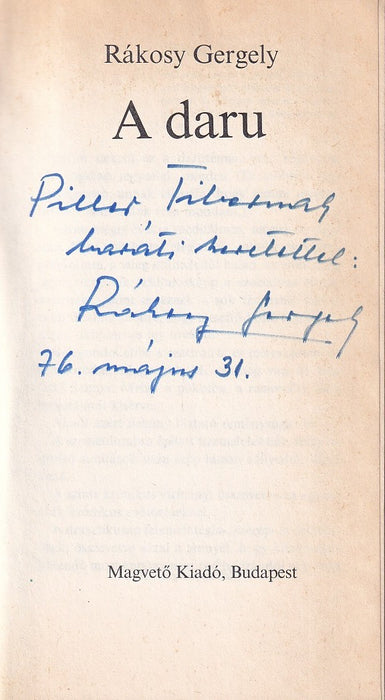 Rákosy Gergely
A daru
Piller Tibornak
baráti szeretettel:
Rákosy Gergely
76. május 31.
Magvető Kiadó, Budapest